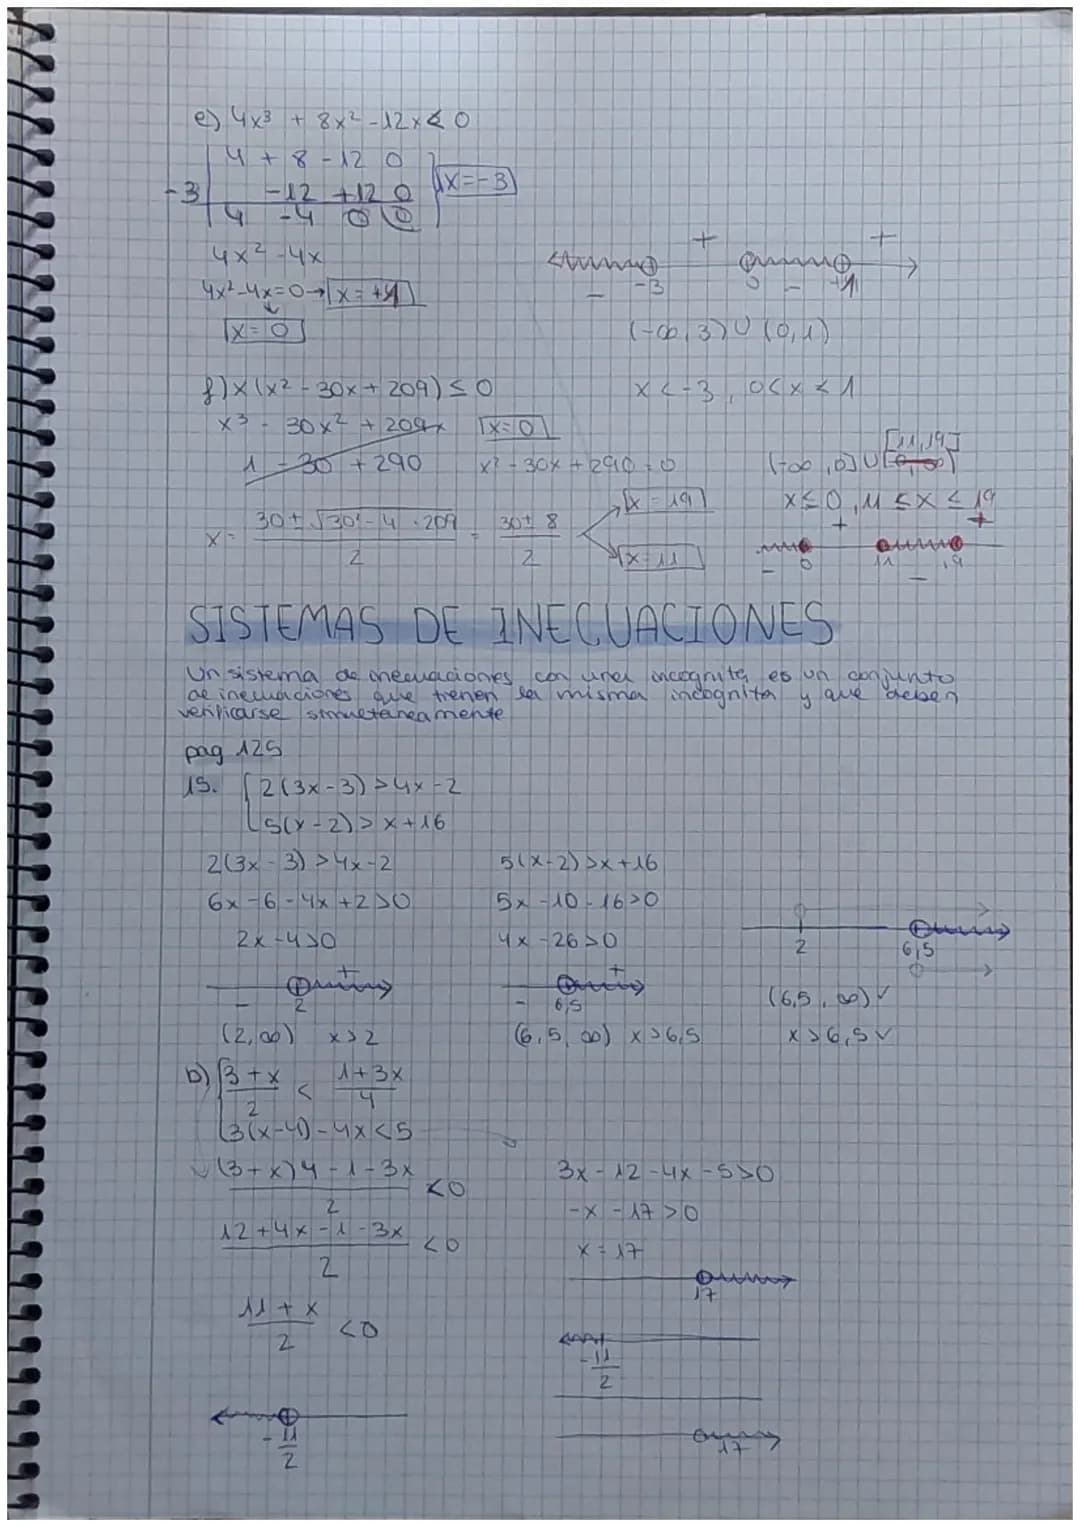 e) 4x³ + 8x² - 12x < 0
4 + 8 - 12 0
-3 -12 +12 0
4 -4 0 0
x = -3
4x² - 4x
4x² - 4x = 0 → x = +1
x = 0
+ +
-3 0 +1
- -
(-∞, 3) ∪ (0, 1)
x < -3, 0 < x < 1
f) x(x² - 30x + 209) ≤ 0
x³ - 30x² + 209x x = 0
1 - 30 + 290 x² - 30x + 290 = 0
[11, 19]
(-∞, 0] ∪
x ≤ 0, 11 ≤ x ≤ 19
x = (30 ± √(30² - 4 · 209)) / 2 = (30 ± 8) / 2
x = 19
x = 11
+ +
- 0 11 - 19
SISTEMAS DE INECUACIONES
Un sistema de inecuaciones con una incognita es un conjunto
de inecuaciones que tienen la misma incógnita y que deben
verificarse simultaneamente
pag 125
15. { 2(3x - 3) > 4x - 2
5(x - 2) > x + 16
2(3x - 3) > 4x - 2 5(x - 2) > x + 16
6x - 6 - 4x + 2 > 0 5x - 10 - 16 > 0
2x - 4 > 0 4x - 26 > 0
2 6,5
- 2 + - 6,5 +
(6,5, ∞) ✓
(2, ∞) x > 2 (6,5, ∞) x > 6,5 x > 6,5 ✓
b) { (3 + x)/2 < (1 + 3x)/4
3(x - 4) - 4x < 5
((3 + x)4 - 1 - 3x)/2 < 0 3x - 12 - 4x - 5 > 0
(12 + 4x - 1 - 3x)/2 < 0 -x - 17 > 0
x = 17
17
(11 + x)/2 < 0
-11/2
-11/2
17